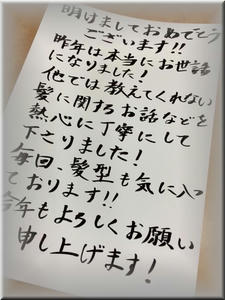 明けましておめでとう
ございます!!
昨年は本当にお世話
になりました!
他では教えてくれない
髪に関するお話などを
熱心に丁寧にして
下さりました!
毎回、髪型も気に入っ
ております!!
今年もよろしくお願い
申し上げます!